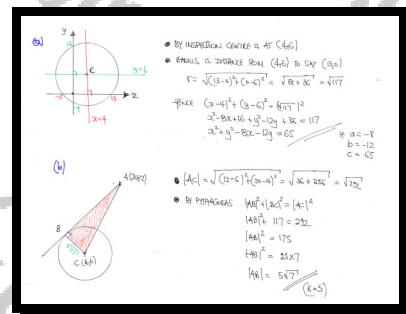 (a)
y
y=6
C
x
-5
13
x=4
• BY INSPECTION CENTRE IS AT (4,6)
• RADIUS IS DISTANCE FROM (4,6) TO SAY (13,0)
r = √(13-4)²+(0-6)² = √81+36 = √117
HENCE (x-4)²+(y-6)² = (√117)²
x²-8x+16+y²-12y+36 = 117
x²+y²-8x-12y = 65
IF a=-8
b=-12
c=65
(b)
A(20,12)
B
√117
C(4,6)
• |AC| = √(12-6)²+(20-4)² = √36+256 = √292
• BY PYTHAGORAS |AB|²+|BC|² = |AC|²
|AB|² + 117 = 292
|AB|² = 175
|AB|² = 25×7
|AB| = 5√7
(K=5)